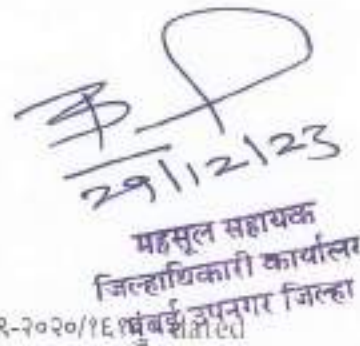 29/12/23
महसूल सहायक
जिल्हाधिकारी कार्यालय
मुंबई उपनगर जिल्हा
२-२०२०/१६१ dated